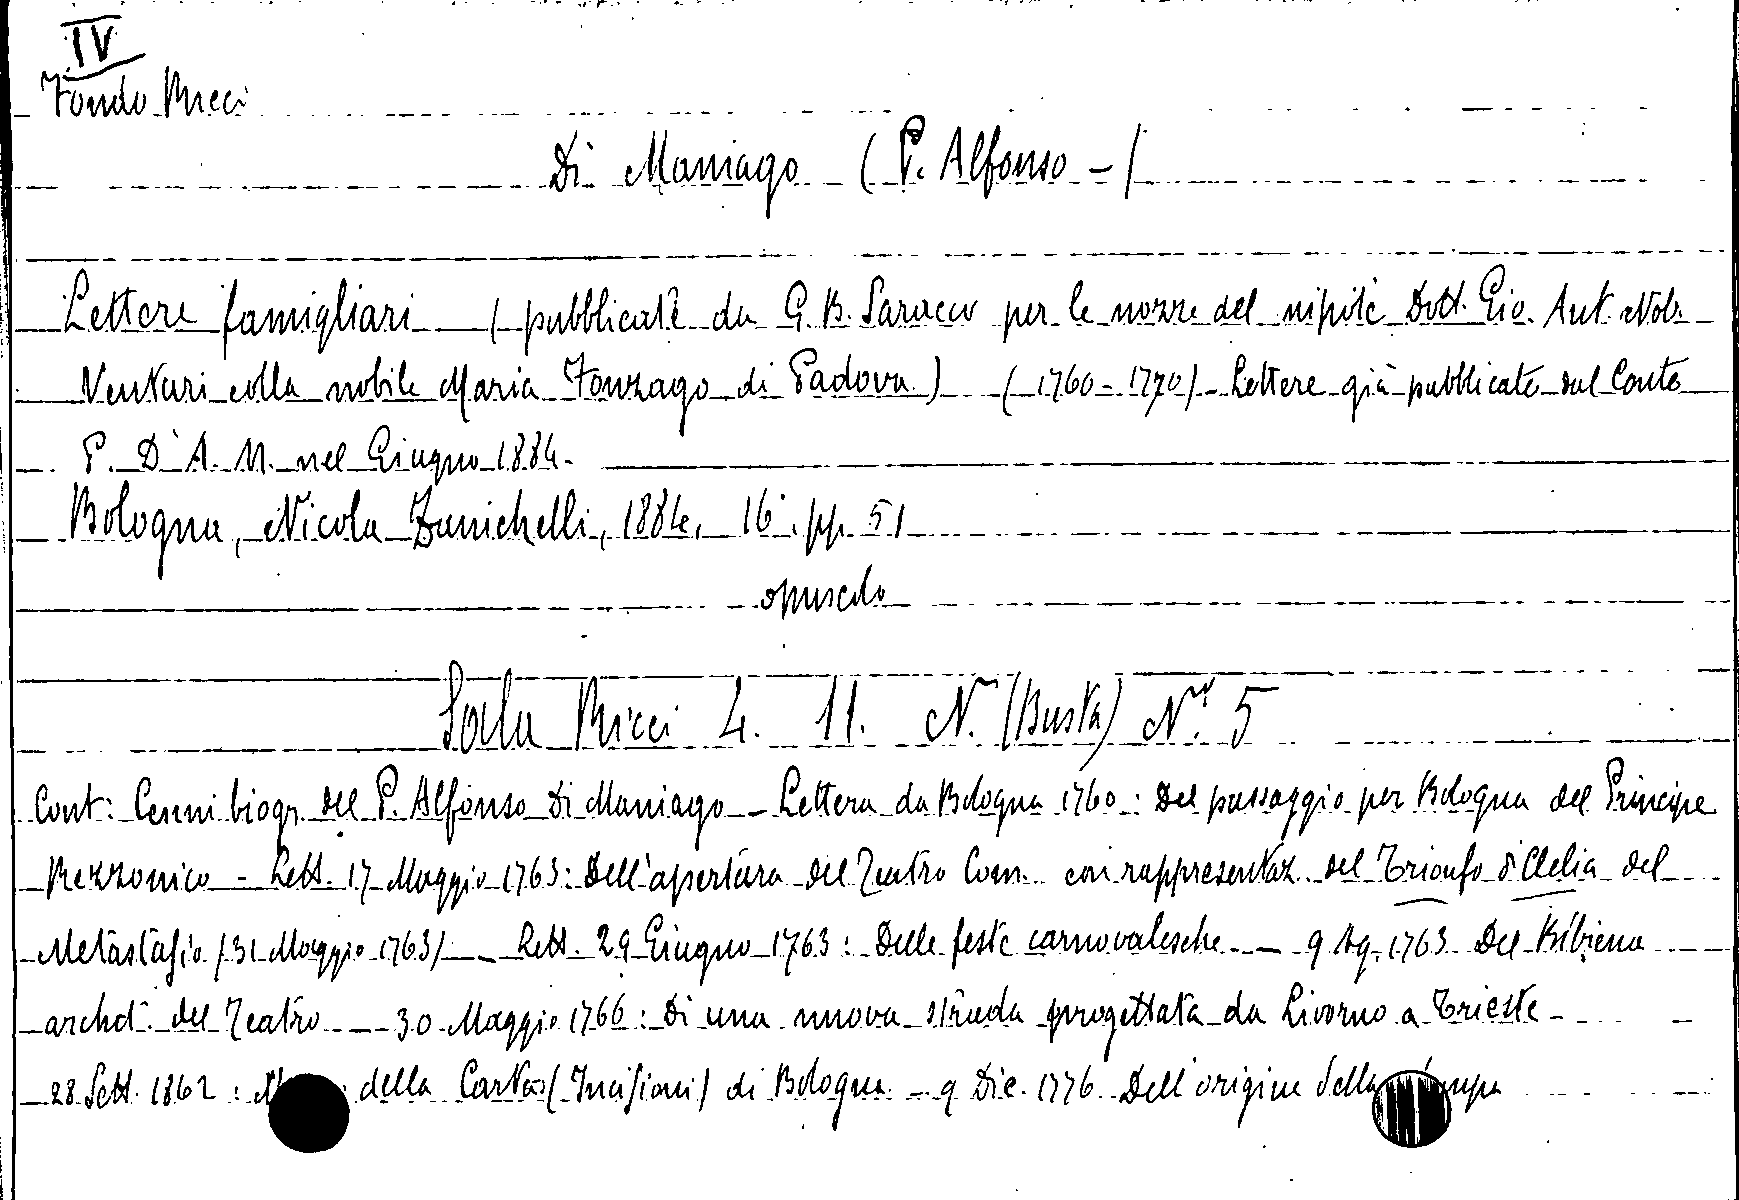 IV
Fondo Ricci
Di Maniago (P. Alfonso - )
Lettere famigliari (pubblicate da G. B. Saracco per le nozze del nipote Dott. Gio. Ant. Nob.
Venturi colla nobile Maria Fonzago di Padova.) (1760-1770) - Lettere già pubblicate dal Conte
P. D'A. M. nel Giugno 1884.
Bologna, Nicola Zanichelli, 1884, 16°. pp. 51
opuscolo
Sala Ricci 4. 11. N. (Busta) N.° 5
Cont: Cenni biogr. del P. Alfonso Di Maniago - Lettera da Bologna 1760: Del passaggio per Bologna del Principe
Rezzonico - Lett. 17 Maggio 1763: Dell'apertura del Teatro Com. con rappresentaz. del Trionfo di Clelia del
Metastasio (31 Maggio 1763) - Lett. 29 Giugno 1763: Delle feste carnovalesche - 9 Ag. 1763 Del Bibiena
archit. del Teatro - 30 Maggio 1766: Di una nuova strada progettata da Livorno a Trieste -
28 Sett. 1862: della Cartas (Incisioni) di Bologna - 9 Dic. 1776 Dell'origine della